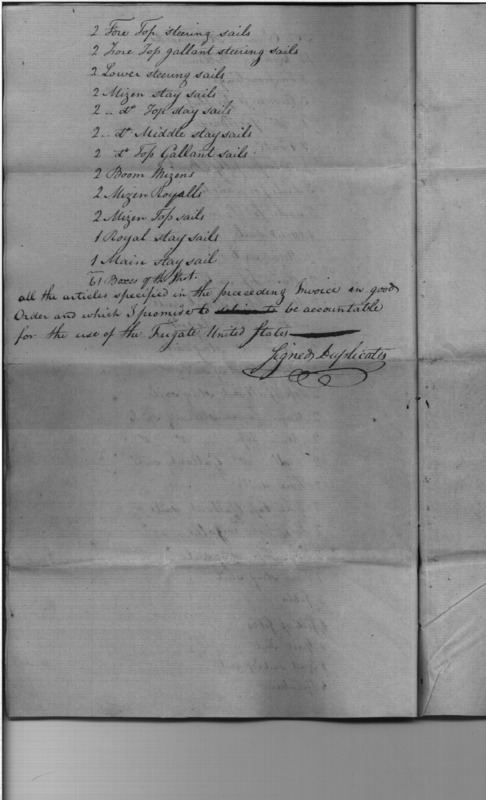 2 Fore Top steering sails
2 Fore Top gallant steering sails
2 Lower steering sails
2 Mizen stay sails
2 .. do Top stay sails
2 .. do Middle stay sails
2 do Top Gallant sails
2 Boom Mizens
2 Mizen Royalls
2 Mizen Top sails
1 Royal stay sails
1 Main stay sail
61 Boxes of
all the articles specified in the preceeding Invoice in good
Order and which I promise to be accountable
for the use of the Frigate United States
Signed Duplicates